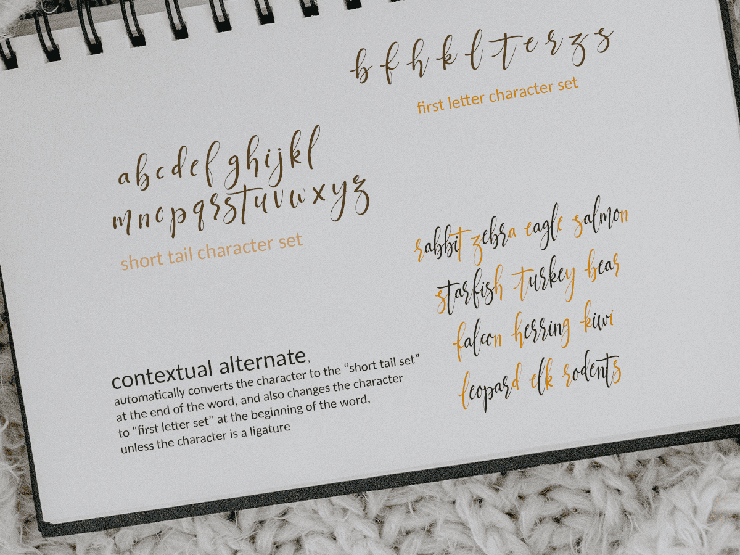 b f h k l t e r z s
first letter character set
a b c d e f g h i j k l
m n o p q r s t u v w x y z
short tail character set
rabbit zebra eagle salmon
starfish turkey bear
falcon herring kiwi
leopard elk rodents
contextual alternate,
automatically converts the character to the "short tail set"
at the end of the word, and also changes the character
to "first letter set" at the beginning of the word.
unless the character is a ligature